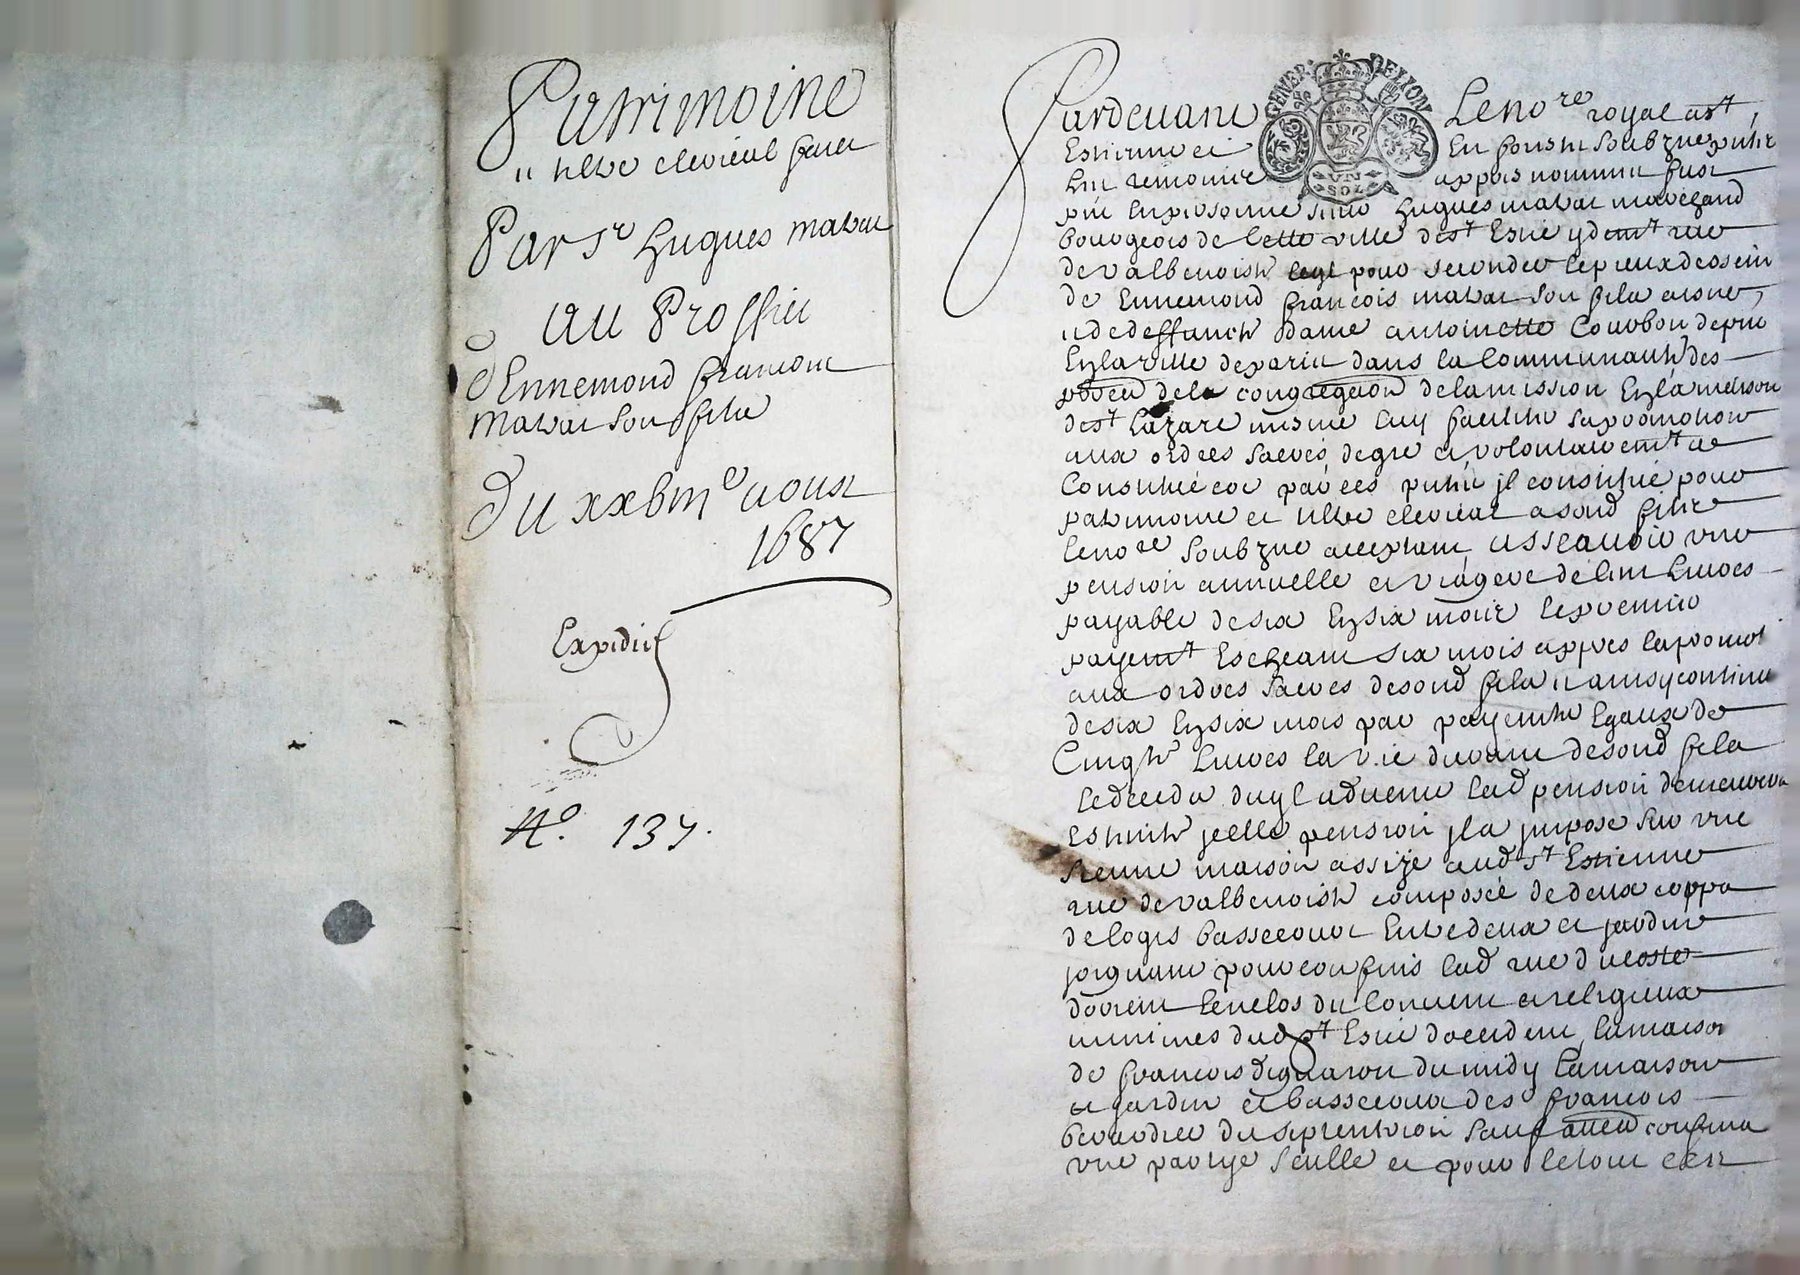 Patrimoine
" tiltre clerical faict
Par Sr hugues mathat
au Proffict
d'Ennemond francois
mathat son filz
Du xxbme aoust
1687
Expedié
No. 137.
GENER. DE LION
UN SOL
Pardevant Le nore royal a St
Estienne et en forest soubzné putz
les temoins appres nommez fust
pnt en personne sieur hugues mathat marchand
bourgeois de cette ville de St Estie y demt rue
de valbenoiste pour seconder le pieux dessein
de Ennemond francois mathat son filz aisne,
et de deffuncte dame antoinette Courbon depnt
en la ville de paris dans la Communauté des
de la congregaon de la mission en la maison
de St Lazare mesme luy facilite sa promotion
aux ordres sacrés de gre et volontairemt a
constitué et par ces putes il constitue pour
patrimoine et tiltre clerical a sond filz
le nore soubzne acceptant, asscavoir une
pension annuelle et viagere de cent livres
payable de six en six mois le premier
payemt escheant six mois appres la promot
aux ordres sacres de sond filz et ainsy continue
de six en six mois par payemte egaux de
Cinqte livres la vie durant de sond filz
le deceds duql advenu lad pension demeurera
esteinte jcelle pension jl a jmpose sur une
sienne maison assize aud St Estienne
rue de valbenoiste composée de deux corps
de logis basse cour entre deux et jardin
joignant pour confins lad rue du coste
d'orient le clos du couvent et religieux
minimes dud St Estie d'occident, la maison
de francois du midy la maison
et jardin et basse cour de francois
du septentrion sauf confins
une partye seulle et pour le tout et en